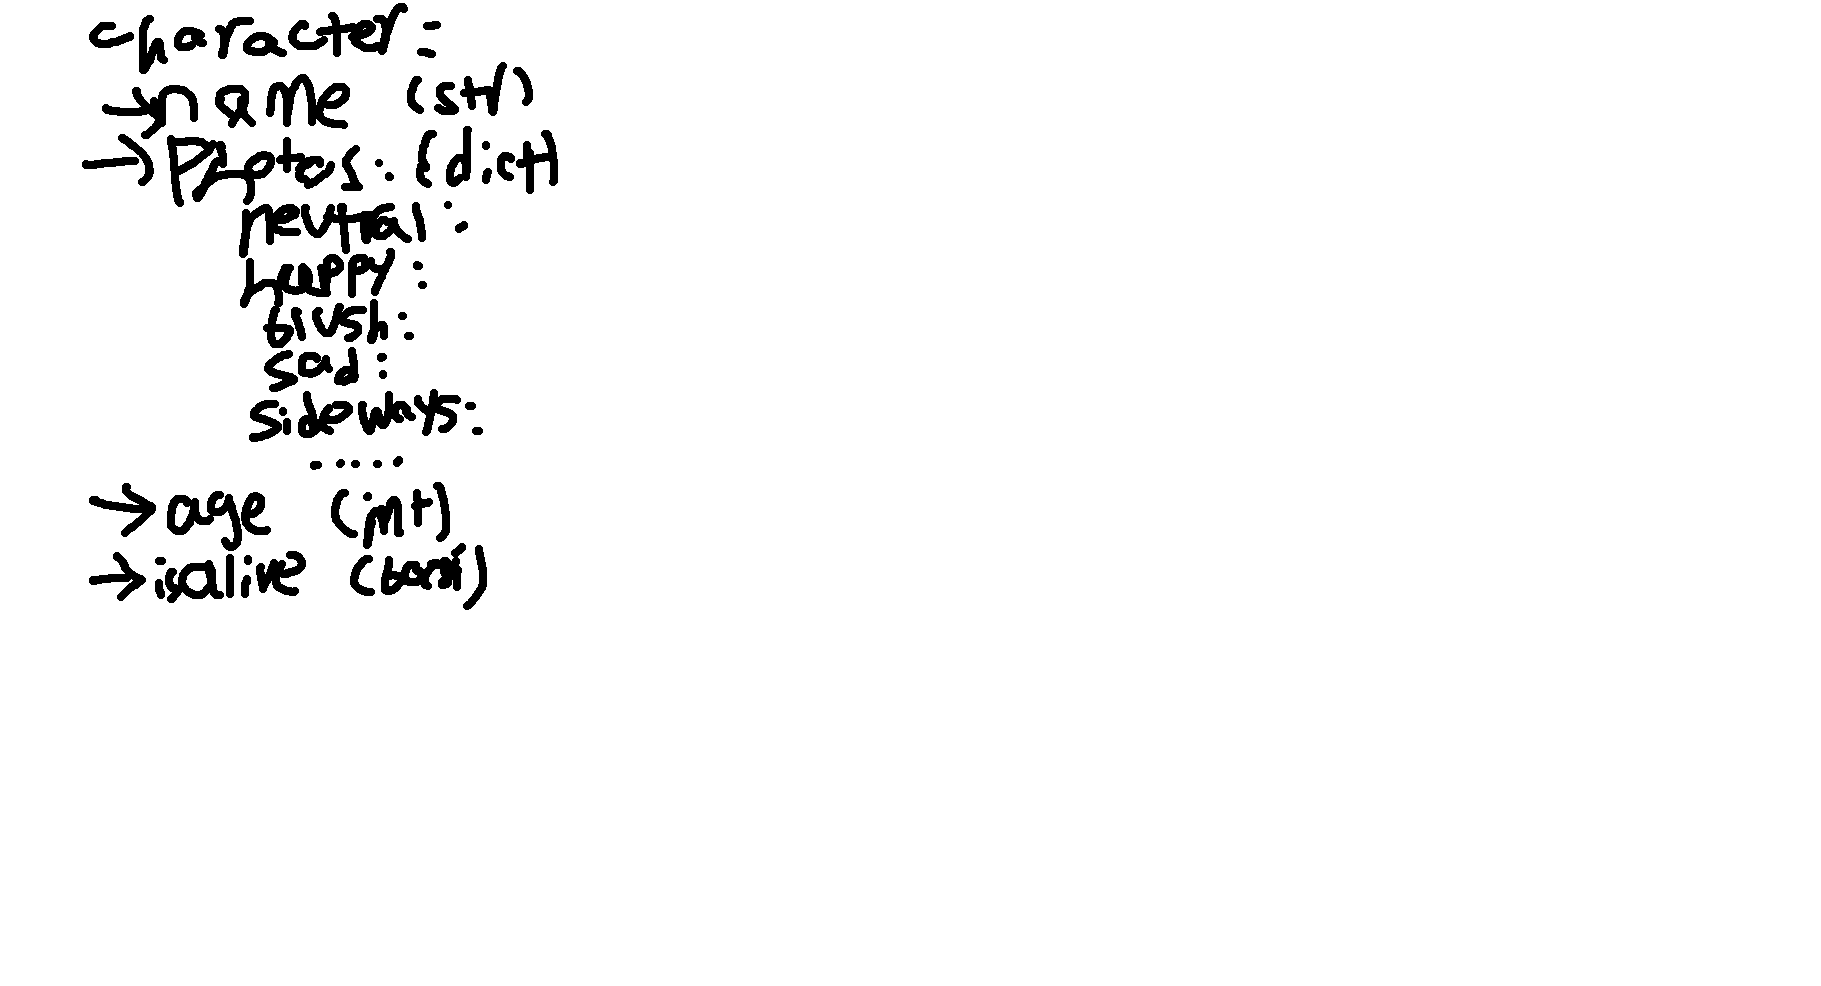 character:
→ name (str)
→ Photos: (dict)
neutral:
happy:
blush:
sad:
sideways:
.....
→ age (int)
→ isalive